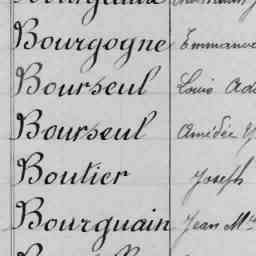 Bourgogne Emmanue
Bourseul Louis
Bourseul Amédée
Boutier Joseph
Bourguain Jean M